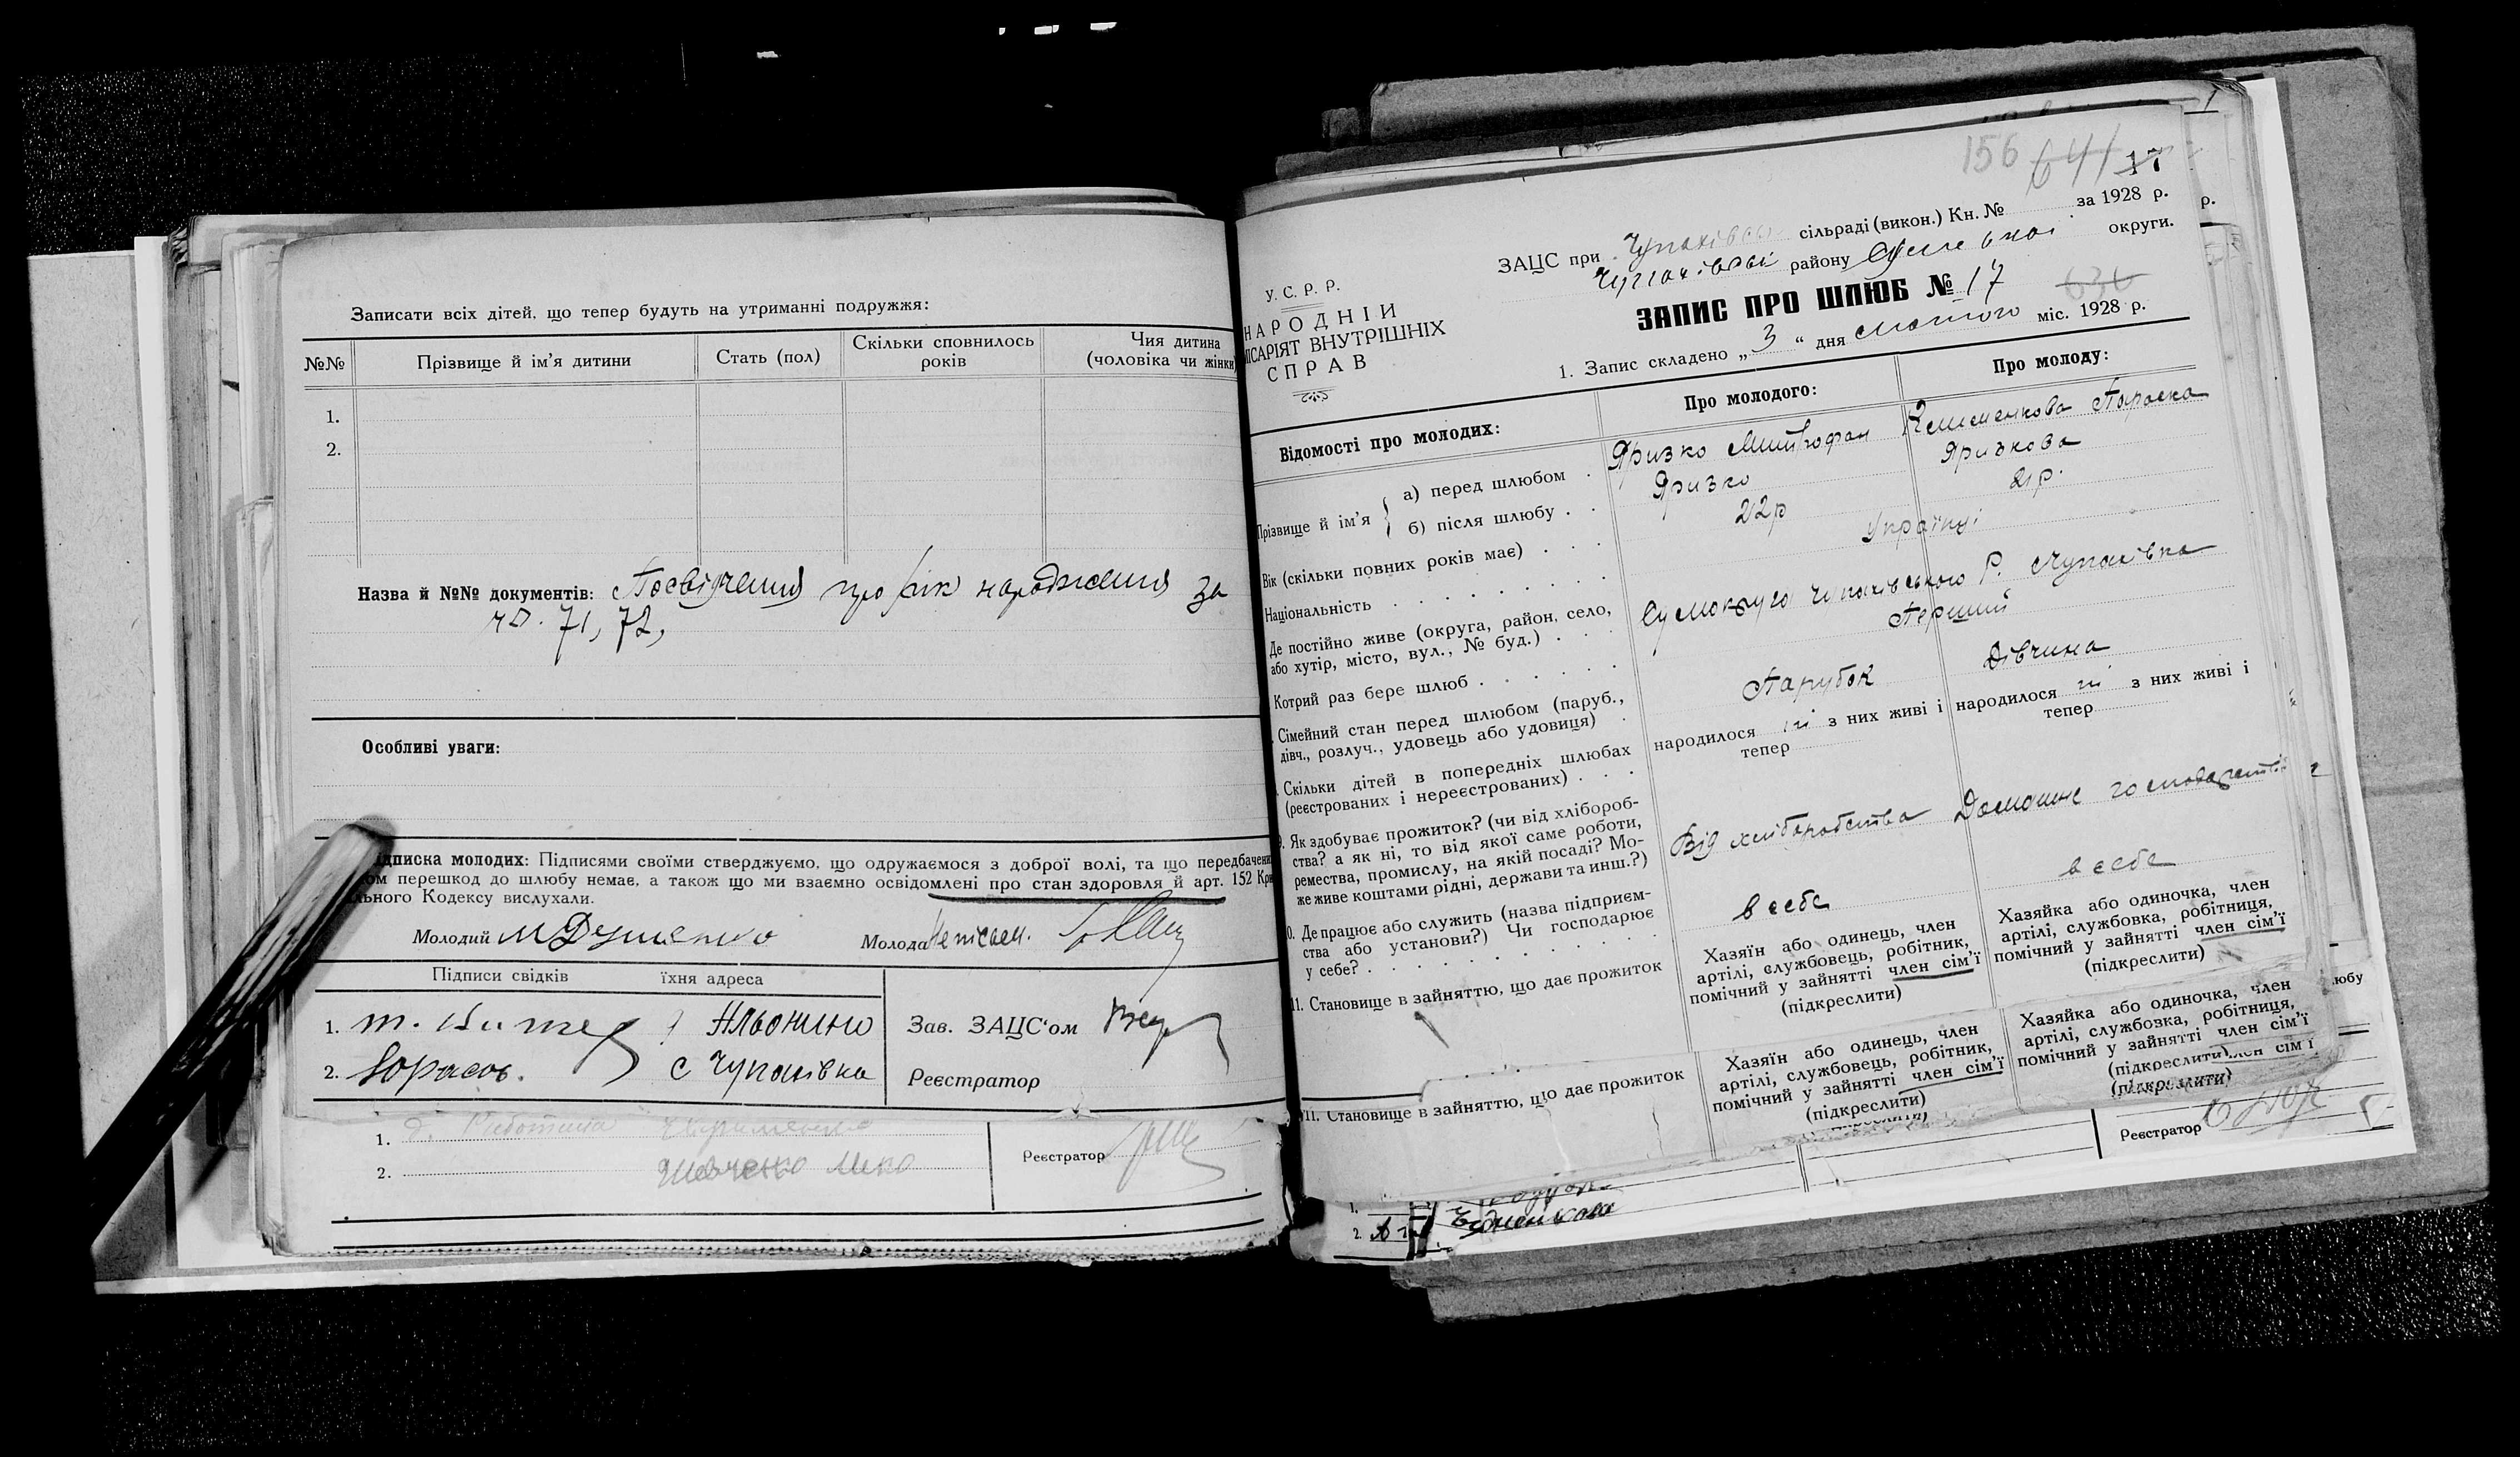 Записати всіх дітей, що тепер будуть на утриманні подружжя:
№№
Прізвище й ім'я дитини
Стать (пол)
Скільки сповнилось років
Чия дитина (чоловіка чи жінки
1.
2.
Назва й №№ документів: Посвідчення про рік народження за
чо. 71, 72,
Особливі уваги:
дписка молодих: Підписями своїми стверджуємо, що одружаємося з доброї волі, та що передбачени
ом перешкод до шлюбу немає, а також що ми взаємно освідомлені про стан здоров'я й арт. 152 Кри
льного Кодексу вислухали.
Молодий Молода
Підписи свідків їхня адреса
1.
2. с Чупахівка
Зав. ЗАЦС'ом
Реєстратор
1.
2. Шевченко
Реєстратор
156 641 17
У. С. Р. Р.
НАРОДНІЙ
ІСАРІЯТ ВНУТРІШНІХ
СПРАВ
ЗАЦС при Чупахівсь сільраді (викон.) Кн. № за 1928 р.
Чупахівськ району Сумської округи.
ЗАПИС ПРО ШЛЮБ № 17 636
1. Запис складено „3“ дня лютого міс. 1928 р.
Відомості про молодих:
Про молодого:
Про молоду:
Прізвище й ім'я
а) перед шлюбом
Яризко Митрофан
Клименкова Параска
б) після шлюбу
Яризко
Яризкова
Вік (скільки повних років має)
22р
21р.
Національність
Українці
Де постійно живе (округа, район, село,
або хутір, місто, вул., № буд.)
Сумокруга Чупахівського Р. Чупахівка
Котрий раз бере шлюб
Перший
Сімейний стан перед шлюбом (паруб.,
дівч., розлуч., удовець або удовиця)
Парубок
Дівчина
Скільки дітей в попередніх шлюбах
(реєстрованих і нереєстрованих)
народилося ні з них живі і
тепер
народилося ні з них живі і
тепер
9. Як здобуває прожиток? (чи від хлібороб-
ства? а як ні, то від якої саме роботи,
ремества, промислу, на якій посаді? Мо-
же живе коштами рідні, держави та инш.?)
Від хліборобства
Домашнє господарство
0. Де працює або служить (назва підприєм-
ства або установи?) Чи господарює
у себе?
в себе
в себе
11. Становище в зайняттю, що дає прожиток
Хазяїн або одинець, член
артілі, службовець, робітник,
помічний у зайнятті член сім'ї
(підкреслити)
Хазяйка або одиночка, член
артілі, службовка, робітниця,
помічний у зайнятті член сім'ї
(підкреслити)
11. Становище в зайняттю, що дає прожиток
Хазяїн або одинець, член
артілі, службовець, робітник,
помічний у зайнятті член сім'ї
(підкреслити)
Хазяйка або одиночка, член
артілі, службовка, робітниця,
помічний у зайнятті член сім'ї
(підкреслити)
член сім'ї
(підкреслити)
любу
Реєстратор
1.
2.